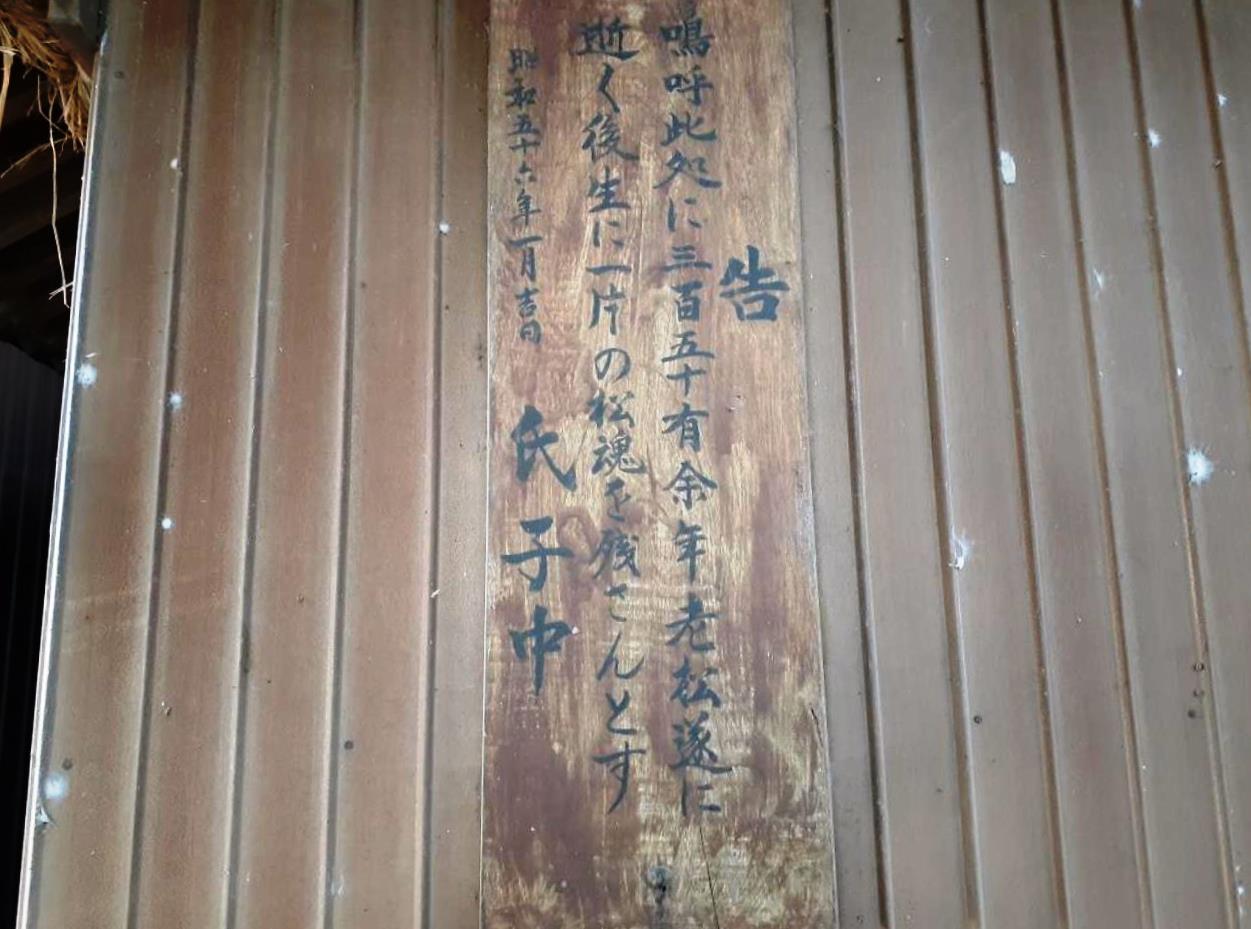 告
鳴呼此処に三百五十有余年老松遂に
逝く後生に一片の松魂を残さんとす
昭和五十六年一月吉日
氏子中